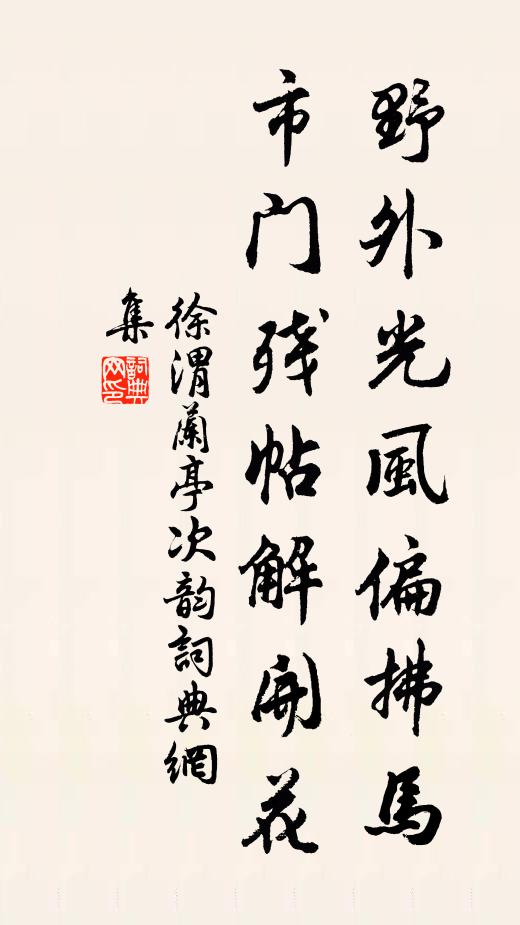 野外光風偏拂馬
市门残帖解開花
徐渭蘭亭次韵詞典網
集
詞典
网印